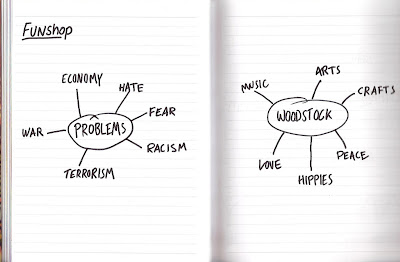 FUNSHOP
ECONOMY
HATE
FEAR
WAR
PROBLEMS
RACISM
TERRORISM
ARTS
MUSIC
CRAFTS
WOODSTOCK
LOVE
PEACE
HIPPIES